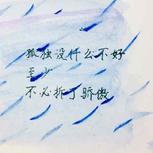 孤独没什么不好
至少
不必拆了骄傲